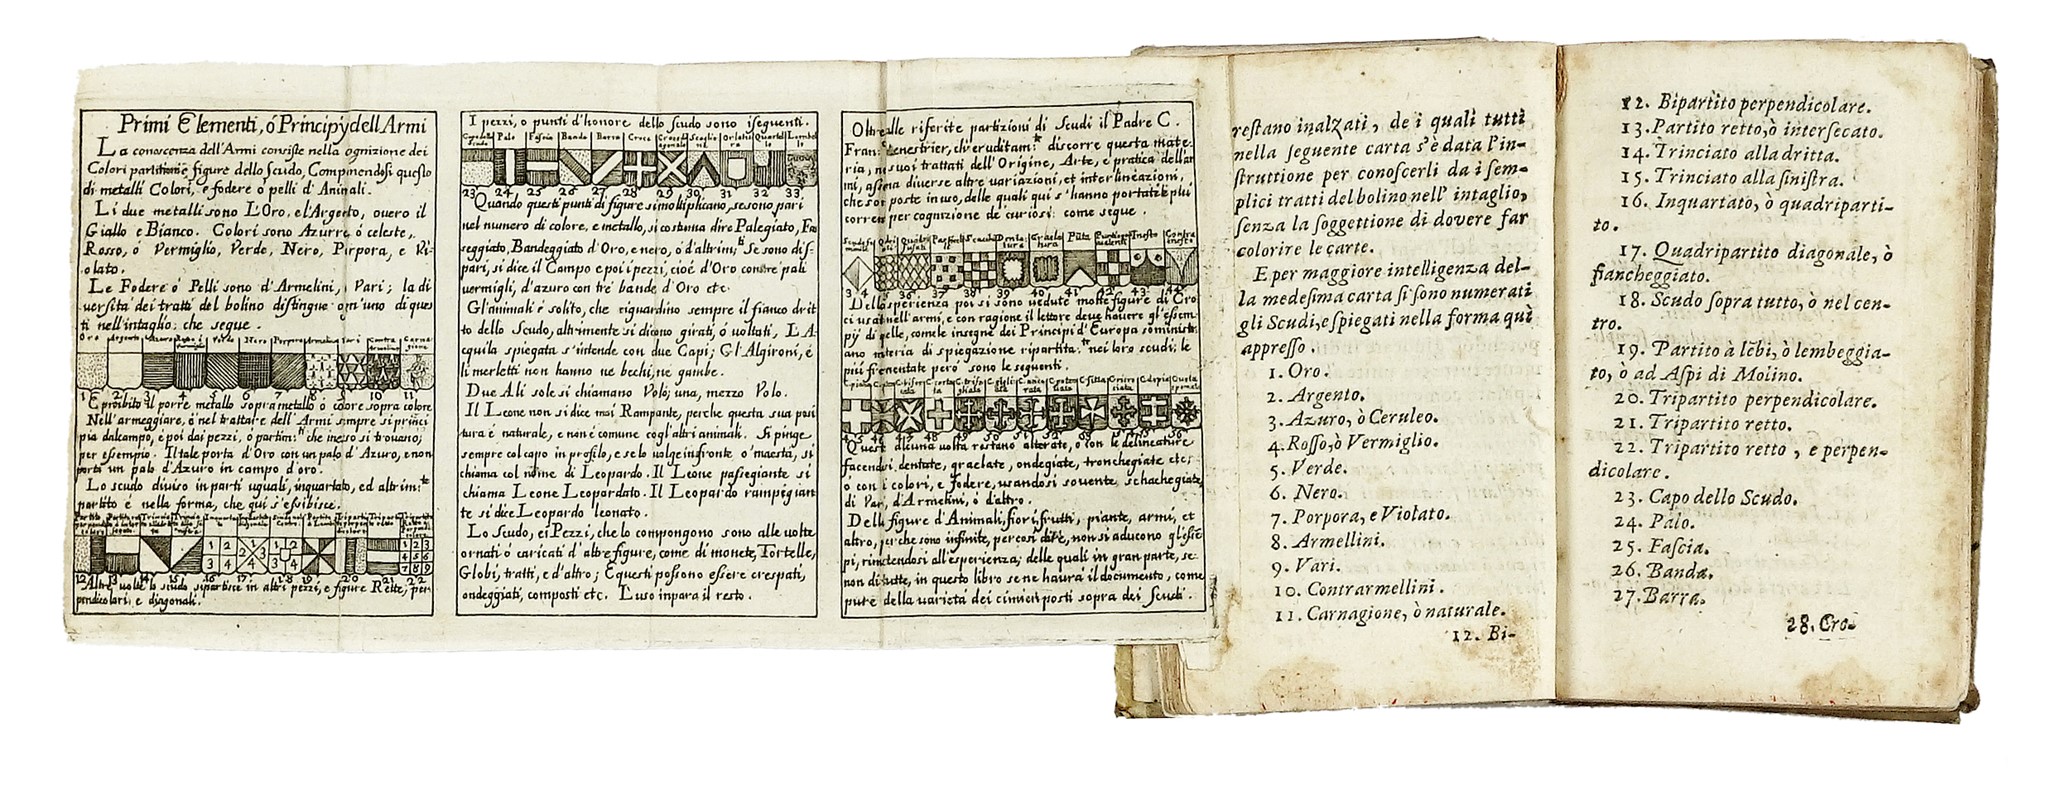 Primi Elementi, ó Principÿ dell Armi
La conoscenza dell'Armi consiste nella cognizione dei
Colori partitioni e figure dello scudo, Componendosi questo
di metalli Colori, e fodere ò pelli d'Animali.
Li due metalli sono L'Oro, el'Argento, ouero il
Giallo e Bianco. Colori sono Azurre, ó celeste,
Rosso, ó Vermiglio, Verde, Nero, Porpora, e Vi-
olato.
Le Fodere ó Pelli sono d'Armelini, Vari; la di
uersità dei tratti del bolino distingue ogn'uno di ques
ti nell'intaglio, che segue.
Oro Argento Azuro Verde Nero Porpora Armelini Vari Contra Armelini Carna-
1 2 3 4 5 6 7 8 9 10 11
E proibito il porre metallo sopra metallo ó colore sopra colore
Nell'armeggiare, ó nel trattare dell'Armi sempre si princi
pia dal campo, e poi dai pezzi, ó partim: che in esso si trouano;
per essempio. Il tale porta d'Oro con un palo d'Azuro, e non
porta un palo d'Azuro in campo d'oro.
Lo scudo diuiso in parti uguali, inquartato, ed altrim:te
partito é nella forma, che qui s'essibisce.
12 13 14 15 16 17 18 19 20 21 22
Altre uolte lo scudo si partisce in altri pezzi, e figure Rette, per-
pendicolari, e diagonali.
I pezzi, o punti d'honore dello scudo sono i seguenti.
Capo dello Palo Fascia Banda Barra Croce Croce di Scaglio Orlatura Quartel Lembello
23 24 25 26 27 28 29 30 31 32 33
Quando questi punti di figure si moltiplicano, se sono pari
nel numero di colore, e metallo, si costuma dire Palegiato, Fas
seggiato, Bandeggiato d'Oro, e nero, ó d'altrim: Se sono dis-
pari, si dice il Campo e poi i pezzi, cioé d'Oro con tre pali
uermigli, d'azuro con tré bande d'Oro etc.
Gl'animali é solito, che riguardino sempre il fianco drit
to dello Scudo, altrimente si dicono girati, ó uoltati, L'A-
cquila spiegata s'intende con due Capi; Gl'Algironi, é
li merletti non hanno ne bechi, ne gambe.
Due Ali sole si chiamano Volo; una, mezzo Volo.
Il Leone non si dice mai Rampante, perche questa sua posi
tura é naturale, e non é comune cogl'altri animali. Si pinge
sempre col capo in profilo, e se lo uolge in fronte ó maestà, si
chiama col nome di Leopardo. Il Leone passegiante si
chiama Leone Leopardato. Il Leopardo rampegian
te si dice Leopardo leonato.
Lo Scudo, ei Pezzi, che lo compongono sono alle uolte
ornati ó caricati d'altre figure, come di monete, Tortelle,
Globi, tratti, e d'altro; E questi possono essere crespati,
ondeggiati, composti etc. L'uso inpara il resto.
Oltre alle riferite partizioni di Scudi il Padre C.
Fran: Menestrier, ch'eruditam:te discorre questa mate-
ria, ne suoi trattati dell'Origine, Arte, e pratica dell'ar
mi, assegna diuerse altre uariazioni, et interlineazioni,
che son poste in uso, delle quali qui s'hanno portate le piú
correnti per cognizione de curiosi come segue.
34 35 36 37 38 39 40 41 42 43 44
Dell'esperienza poi si sono uedute molte figure di Cro
ci usate nell'armi, e con ragione il lettore deue hauere gl'essem
pÿ di quelle, come le insegne dei Principi d'Europa sominist
ano materia di spiegazione ripartita:te nei loro scudi; le
più frequentate però sono le seguenti.
45 46 47 48 49 50 51 52 53 54 55 56
Queste alcuna uolta restano alterate, o con le delineature
facendosi, dentate, graelate, ondegiate, tronchegiate etc;
ó con i colori, e fodere, usandosi souente schachegiate,
di Vari, d'Armelini, ó d'altro.
Delle figure d'Animali, fiori, frutti, piante, armi, et
altro, perche sono infinite, per così dire, non si aducono gl'esse
pi, rimetendosi all'esperienza; delle quali in gran parte, se
non di tutte, in questo libro se ne haurà il documento, come
pure della varietà dei cimieri posti sopra dei Scudi.
restano inalzati, de i quali tutti
nella seguente carta s'è data l'in-
struttione per conoscerli da i sem-
plici tratti del bolino nell'intaglio,
senza la soggettione di dovere far
colorire le carte.
E per maggiore intelligenza del-
la medesima carta si sono numerati
gli Scudi, e spiegati nella forma quì
appresso.
1. Oro.
2. Argento.
3. Azuro, ò Ceruleo.
4. Rosso, ò Vermiglio.
5. Verde.
6. Nero.
7. Porpora, e Violato.
8. Armellini.
9. Vari.
10. Contrarmellini.
11. Carnagione, ò naturale.
12. Bi-
12. Bipartito perpendicolare.
13. Partito retto, ò intersecato.
14. Trinciato alla dritta.
15. Trinciato alla sinistra.
16. Inquartato, ò quadriparti-
to.
17. Quadripartito diagonale, ò
fiancheggiato.
18. Scudo sopra tutto, ò nel cen-
tro.
19. Partito à lēbi, ò lembeggia-
to, ò ad Aspi di Molino.
20. Tripartito perpendicolare.
21. Tripartito retto.
22. Tripartito retto, e perpen-
dicolare.
23. Capo dello Scudo.
24. Palo.
25. Fascia.
26. Banda.
27. Barra.
28. Cro-